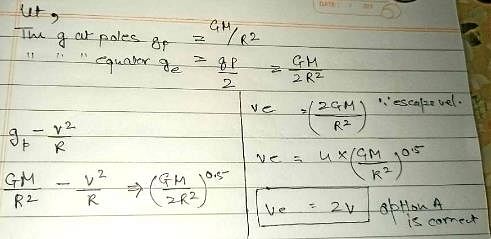 Let,
The g at poles gp = GM/R²
" " " equator ge = gP/2 = GM/2R²
gp - v²/R
GM/R² - v²/R ⇒ (GM/2R²)^0.5
ve = (2GM/R²) ∵ escape vel.
ve = 4 × (GM/R²)^0.5
Ve = 2v option A
is correct